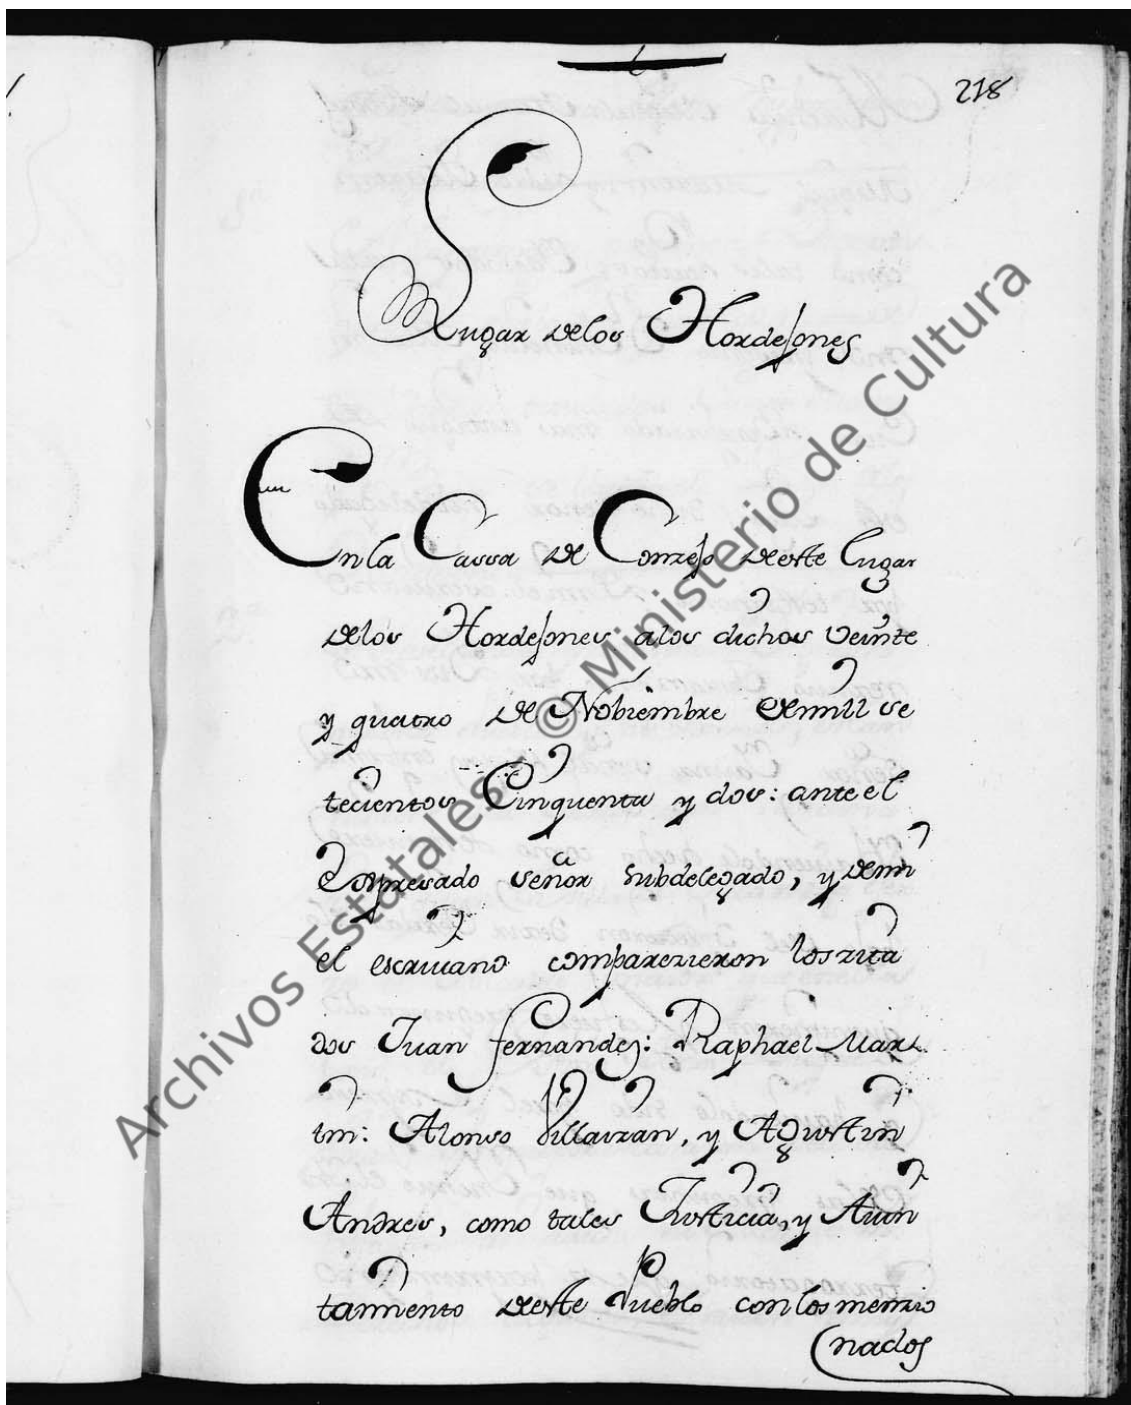 218
Lugar delos Hordejones
En la Cassa de Conzejo deeste Lugar
delos Hordejones a los dichos veinte
y quatro de Nobiembre demill se
tecientos Cinquenta y dos: ante el
Expresado señor subdelegado, y demi
el escrivano comparezieron los zita
dos Juan fernandez: Raphael Mar
tin: Alonso Villairan, y Agustin
Andres, como tales Justicia, y Aiun
tamiento deeste Pueblo con los menzio
nados
Archivos Estatales © Ministerio de Cultura